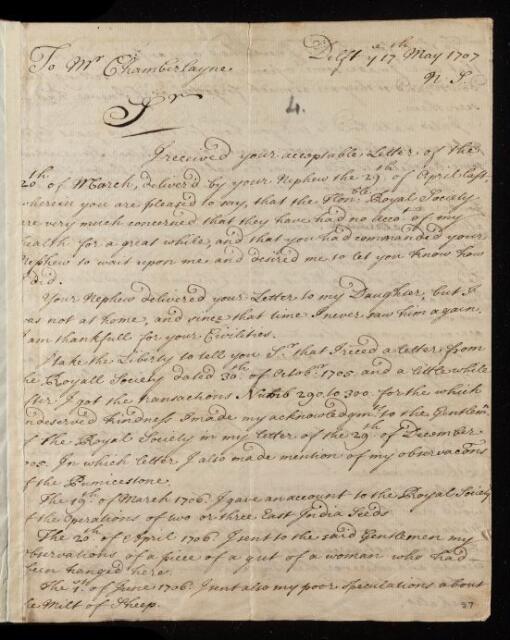 To Mr Chamberlayne.
Delft ye 17th May 1707
N. S.
Sr
4.
I received your acceptable Letter of the
20th of March, deliver'd by your Nephew the 29th of April last
wherein you are pleased to say, that the Honble Royal Society
are very much concerned that they have had no accot of my
health for a great while, and that you had commanded your
Nephew to wait upon me and desired me to let you know how
I did.
Your Nephew delivered your Letter to my Daughter, but I
was not at home, and since that time I never saw him again.
I am thankfull for your Civilities.
I take the Liberty to tell you Sr that I reced a letter from
the Royall Society dated 30th of Octobr 1705 and a little while
after I got the transactions Numb 290 to 300. for the which
undeserved kindness I made my acknowledgmt to the Gentlem̄
of the Royal Society in my letter of the 29th of December
1705. In which letter I also made mention of my observacōns
of the Pumicestone.
The 19th of March 1706. I gave an account to the Royal Society
of the operations of two or three East India Seeds
The 20th of April 1706. I sent to the said Gentlemen my
observations of a piece of a gut of a woman who had
been hanged here.
The of June 1706. I sent also my poor speculations about
the Milt of Sheep.
37